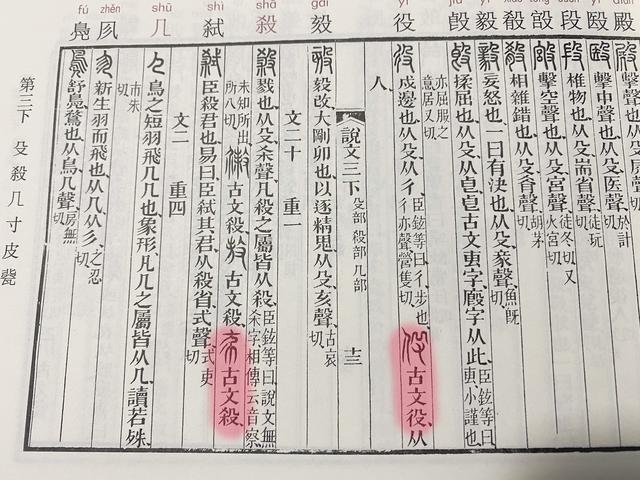 fú zhěn shū shì shā gǎi yì
鳧 㐱 几 弒 殺 㱾 役 毀 毅 殽 㲆 段 毆 殿
擊聲也从殳𡱂聲
擊中聲也从殳医聲於計切
椎物也从殳耑省聲徒玩切
擊空聲也从殳宮聲徒冬切又火宮切
相雜錯也从殳肴聲胡茅切
妄怒也一曰有決也从殳豙聲魚旣切
揉屈也从殳从皀皀古文叀字廏字从此臣鉉等曰叀小謹也
亦屈服之意居又切
戍邊也从殳从彳臣鉉等曰彳步也彳亦聲營隻切 古文役从
人
說文三下 殳部 殺部 几部 十三
毅改大剛卯也以逐精鬼从殳亥聲古哀切
文二十 重一
戮也从殳杀聲凡殺之屬皆从殺臣鉉等曰說文無杀字相傳云音察
未知所出所八切 古文殺 古文殺 古文殺
臣殺君也易曰臣弒其君从殺省式聲式吏切
文二 重四
鳥之短羽飛几几也象形凡几之屬皆从几讀若殊
市朱切
新生羽而飛也从几从彡之忍切
舒鳧鶩也从鳥几聲房無切
第三下 殳 殺 几 寸 皮 㼱